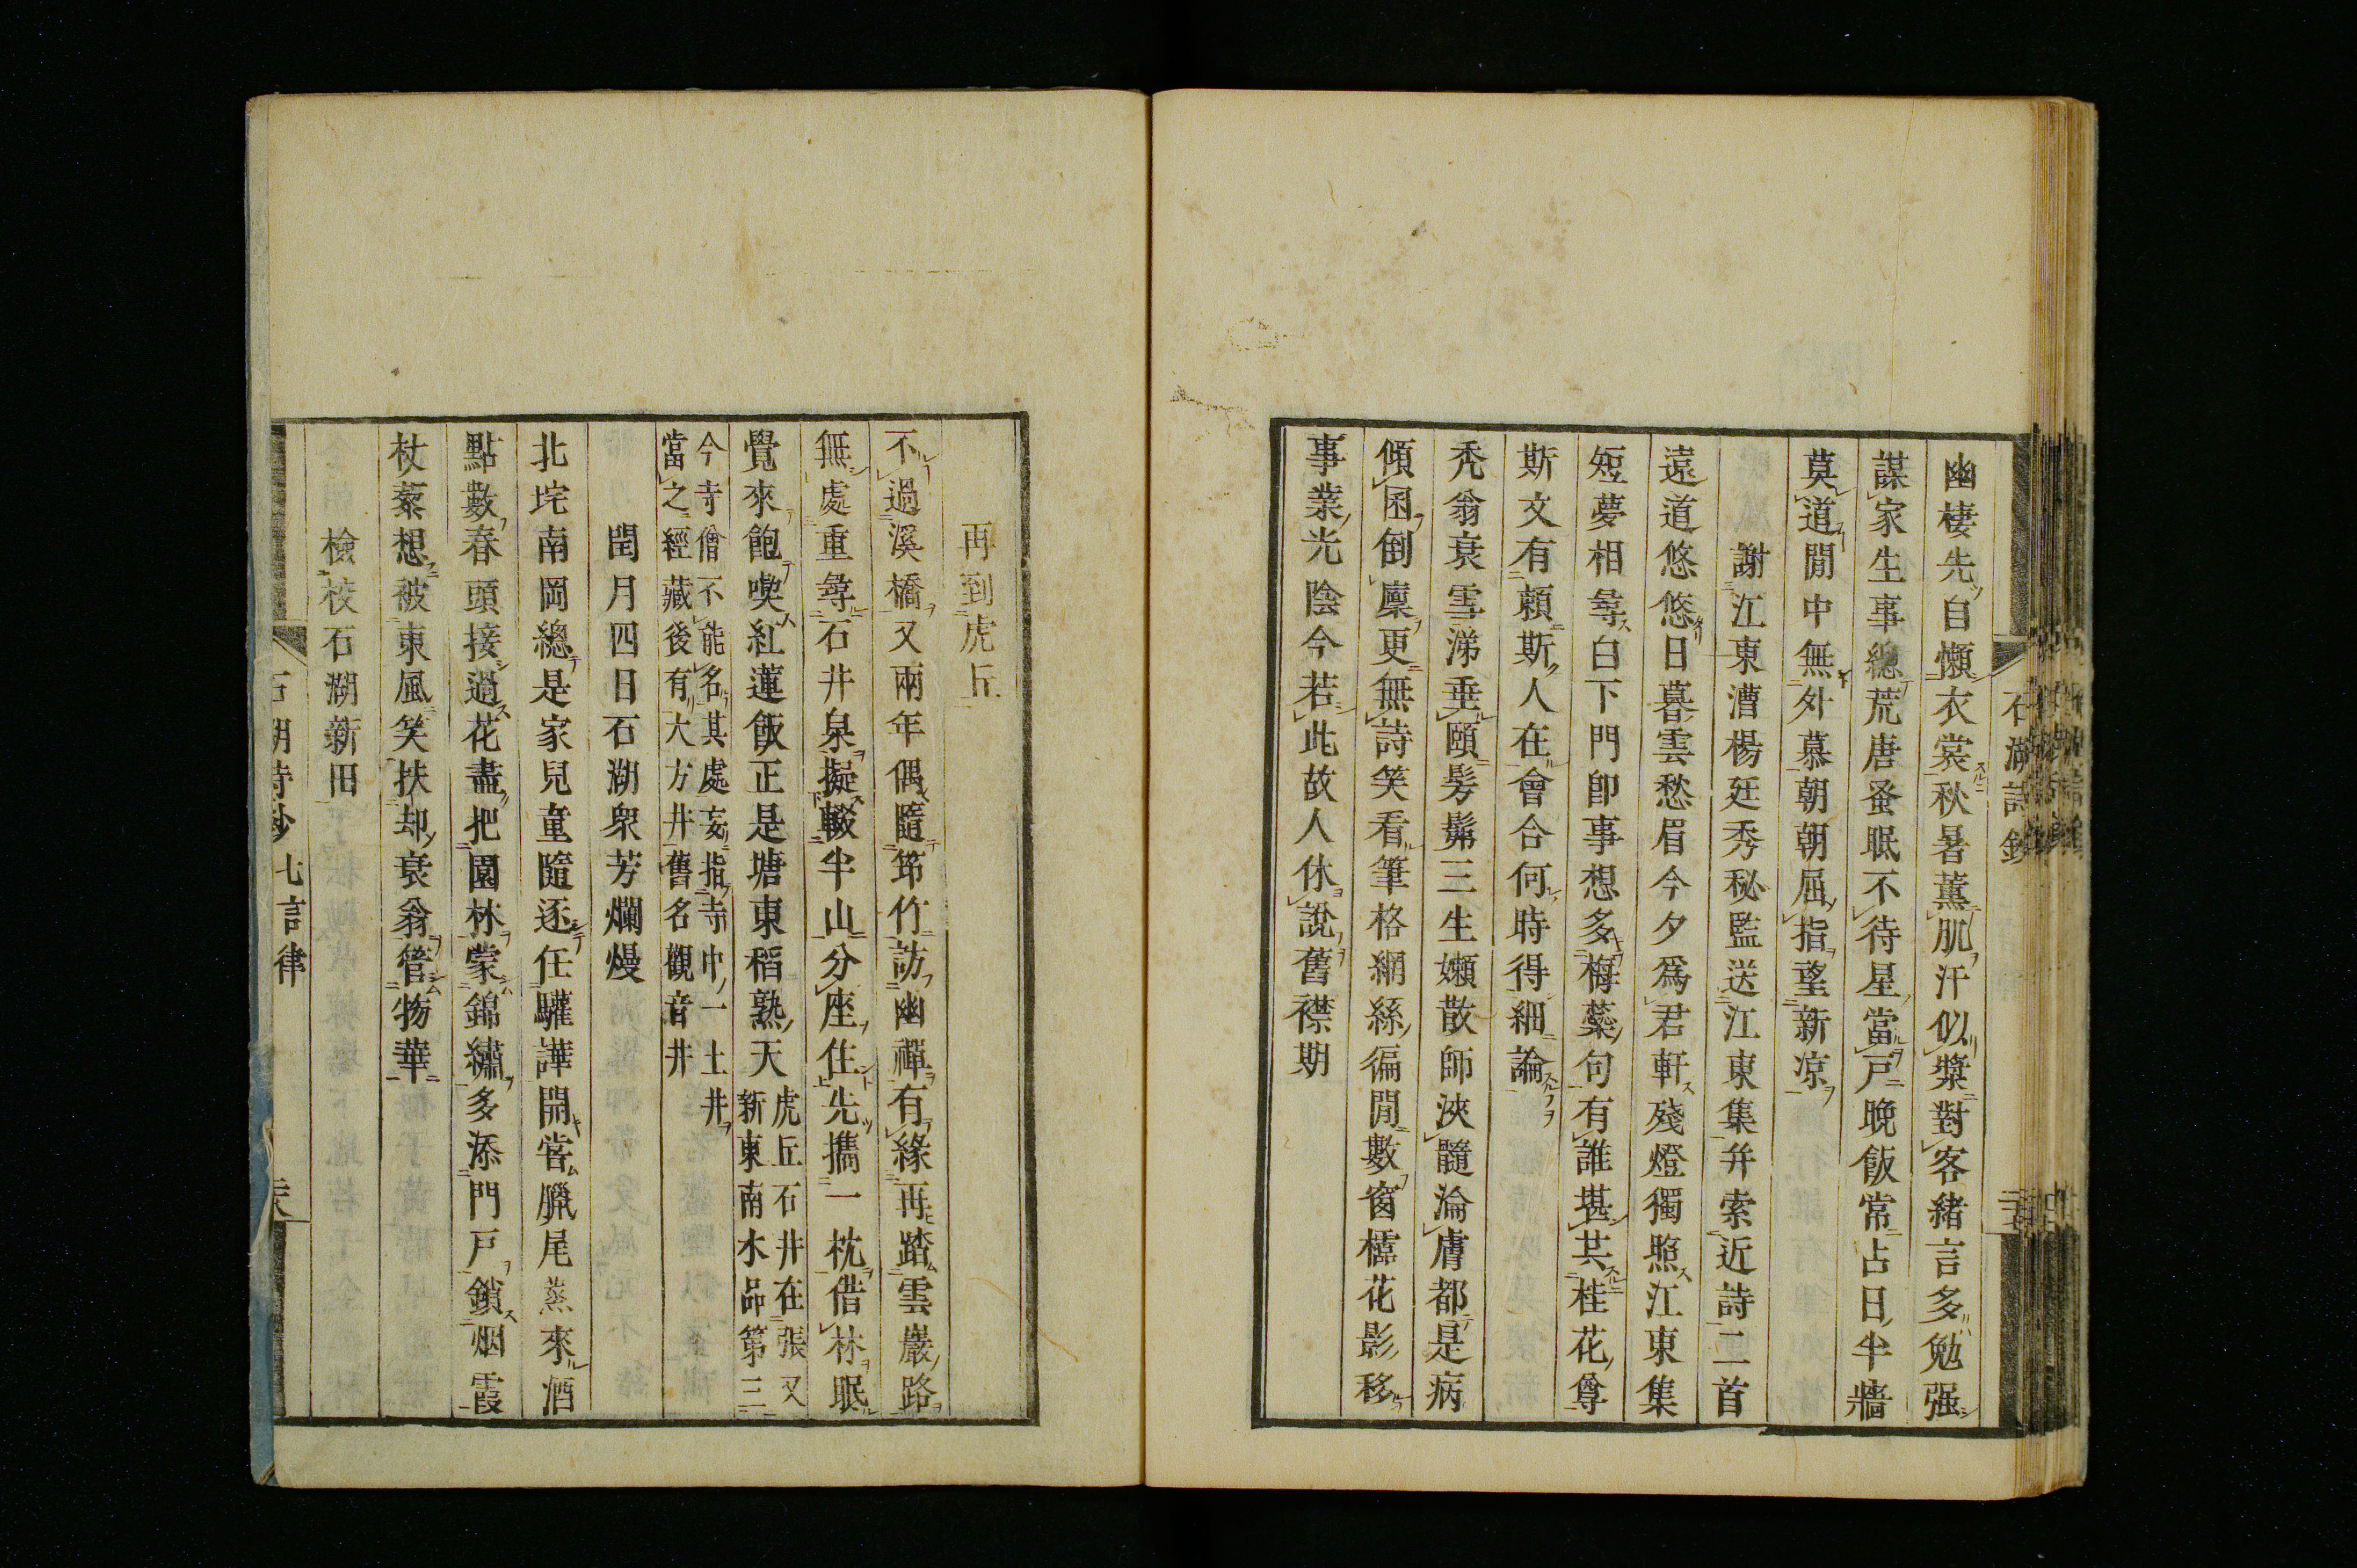 石湖詩鈔
幽棲先自懶衣裳秋暑薫肌汗似漿對客緒言多勉强
謀家生事總荒唐蚤眠不待星當戸晚飯常占日半牆
莫道閒中無外慕朝朝屈指望新凉
謝江東漕楊廷秀秘監送江東集幷索近詩二首
遠道悠悠日暮雲愁眉今夕爲君軒殘燈獨照江東集
短夢相尋白下門卽事想多梅蘂句有誰堪共桂花尊
斯文有賴斯人在會合何時得細論
禿翁衰雪涕垂頤髣髴三生嬾散師浹髓淪膚都是病
傾囷倒廩更無詩笑看筆格網絲徧閒數窗櫺花影移
事業光陰今若此故人休說舊襟期
再到虎丘
不過溪橋又兩年偶隨筇竹訪幽禪有緣再踏雲巖路
無處重尋石井泉擬輟半山分座住先攜一枕借林眠
覺來飽喫紅蓮飯正是塘東稻熟天虎丘石井在張又
新東南水品第三
今寺僧不能名其處妄指寺中一土井
當之經藏後有大方井舊名觀音井
閏月四日石湖衆芳爛熳
北垞南岡總是家兒童隨逐任驩譁開嘗臘尾蒸來酒
點數春頭接過花盡把園林蒙錦繡多添門戸鎖烟霞
杖藜想被東風笑扶却衰翁管物華
檢校石湖新田
石湖詩鈔 七言律